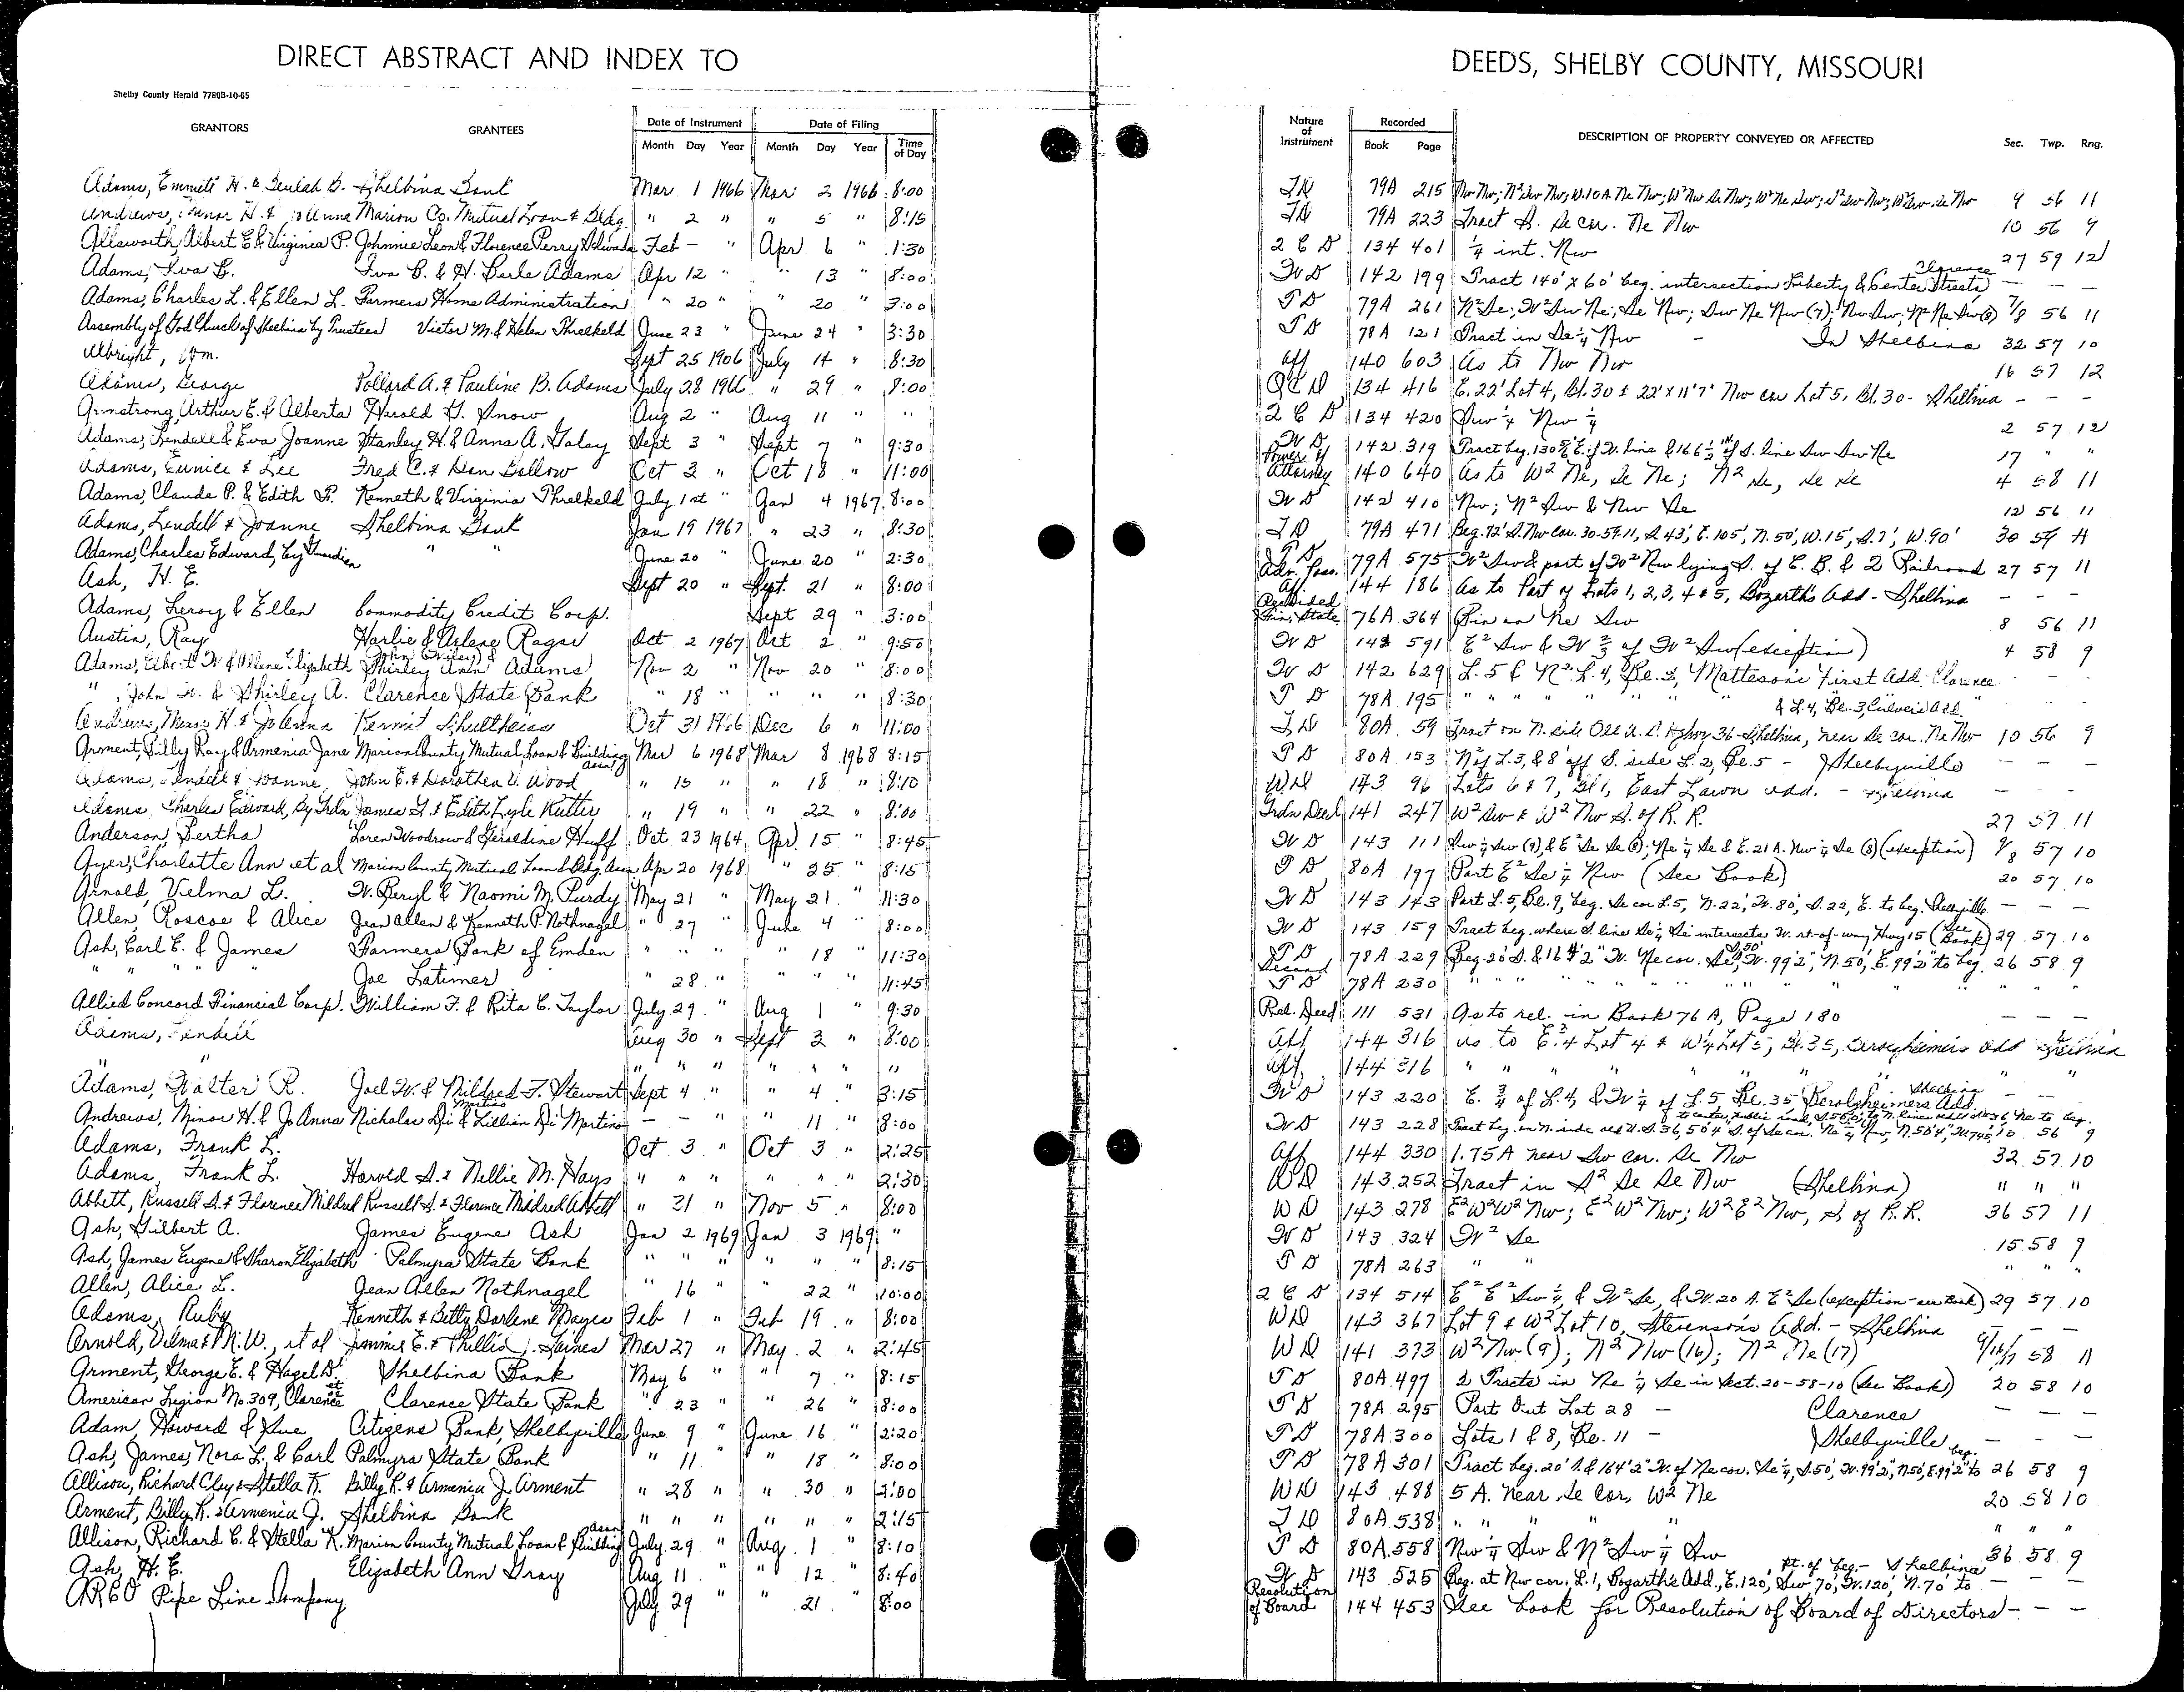 DIRECT ABSTRACT AND INDEX TO
DEEDS, SHELBY COUNTY, MISSOURI
Shelby County Herald 7780B-10-65
GRANTORS GRANTEES Date of Instrument Date of Filing
Month Day Year Month Day Year Time of Day
Nature of Instrument Recorded Book Page DESCRIPTION OF PROPERTY CONVEYED OR AFFECTED Sec. Twp. Rng.
Adams, Emmett H. & Beulah B. Shelbina Bank Mar 1 1966 Mar 2 1966 8:00 79A 215 9 56 11
Andrews, H. & JoAnna Marion Co. Mutual Loan & Bldg. " 2 " " 5 " 8:15 79A 223 Tract S. Se cor. Ne Nw 10 56 9
Allsworth, Albert E. & Virginia P. Johnnie Leon & Florence Perry Feb - " Apr 6 " 1:30 2 C D 134 401 1/4 int. Nw 27 59 12
Adams, Iva B. Iva B. & H. Berle Adams Apr 12 " " 13 " 8:00 W D 142 199 Tract 140' x 60' beg. intersection Liberty & Center Streets Clarence — — —
Adams, Charles L. & Ellen L. Farmers Home Administration " 20 " " 20 " 3:00 T D 79A 261 N² Se; W² Sw Ne; Se Nw; Sw Ne Nw (7); Nw Sw; N² Ne Sw (8) 7/8 56 11
Assembly of God Church of Shelbina by Trustees Victor M. & Helen Threlkeld June 23 " June 24 " 3:30 T D 78A 121 Tract in Se 1/4 Nw - In Shelbina 32 57 10
Albright, Wm. Sept 25 1906 July 14 " 8:30 Aff 140 603 As to Nw Nw 16 57 12
Adams, George Pollard A. & Pauline B. Adams July 28 1966 " 29 " 8:00 Q C D 134 416 E. 22' Lot 4, Bl. 30 & 22' x 11'7" Nw cor Lot 5, Bl. 30 - Shelbina — — —
Armstrong, Arthur E. & Alberta Harold G. Snow Aug 2 " Aug 11 " " 2 C D 134 420 Sw 1/4 Nw 1/4 2 57 12
Adams, Lendell & Eva Joanne Stanley H. & Anna A. Galay Sept 3 " Sept 7 " 9:30 W D 142 319 17 " "
Adams, Eunice & Lee Fred C. & Don Gollow Oct 3 " Oct 18 " 11:00 Power of Attorney 140 640 As to W² Ne, Se Ne; N² Se, Se Se 4 58 11
Adams, Claude P. & Edith F. Kenneth & Virginia Threlkeld July 1st " Jan 4 1967 8:00 W D 142 410 Nw; N² Sw & Nw Se 12 56 11
Adams, Lendell & Joanne Shelbina Bank Jan 19 1967 " 23 " 8:30 T D 79A 471 Beg. 72' S. Nw cor. 30-57-11, S. 43', E. 105', N. 50', W. 15', S. 7', W. 90' 30 57 11
Adams, Charles Edward, by Guardian " " June 20 " June 20 " 2:30 T D 79A 575 W² Sw & part of W² Nw lying S. of C. B. & Q Railroad 27 57 11
Ash, H. E. Sept 20 " Sept. 21 " 8:00 Adv. Poss. Aff 144 186 As to Part of Lots 1, 2, 3, 4 & 5, Bozarth's Add - Shelbina — — —
Adams, Leroy & Ellen Commodity Credit Corp. Sept 29 " 3:00 Fin. State 76A 364 Bin on Ne Sw 8 56 11
Austin, Ray Harlie & Arlene Rager Oct 2 1967 Oct 2 " 9:50 W D 142 591 E² Sw & W 2/3 of W² Sw (exception) 4 58 9
Adams, Elbert W. & Arlene Elizabeth John (Wiley) & Shirley Ann Adams Nov 2 " Nov 20 " 8:00 W D 142 629 L. 5 & N² L. 4, Be. 3, Matteson's First Add. Clarence — —
", John W. & Shirley A. Clarence State Bank " 18 " " " " 8:30 T D 78A 195 " " " " & L. 4, Be. 3, Culver's Add. "
Andrews, Minor H. & JoAnna Kermit Shultheiss Oct 31 1966 Dec 6 " 11:00 T D 80A 59 Tract on N. side Old U. S. Hghwy 36 - Shelbina, near Se cor. Ne Nw 10 56 9
Arment, Billy Ray & Armenia Jane Marion County Mutual, Loan & Building Assn. Mar 6 1968 Mar 8 1968 8:15 T D 80A 153 N² of L. 3, & 8' off S. side L. 2, Be. 5 - Shelbyville — — —
Adams, Lendell & Joanne John E. & Dorothea V. Wood " 15 " " 18 " 8:10 W D 143 96 Lots 6 & 7, Bl 1, East Lawn Add. - Shelbina — —
Adams, Charles Edward, By Grdn James L. & Edith Lyle Rutter " 19 " " 22 " 8:00 Grdn Deed 141 247 W² Sw & W² Nw S. of R. R. 27 57 11
Anderson, Bertha Loren Woodrow & Geraldine Huff Oct 23 1964 Apr. 15 " 8:45 W D 143 111 Sw 1/4 Sw (9), & E² Se Se (8); Ne 1/4 Se & E. 21 A. Nw 1/4 Se (8) (exception) 9/8 57 10
Ayer, Charlotte Ann et al Marion County Mutual Loan & Bldg. Assn Apr 20 1968 " 25 " 8:15 T D 80A 197 Part E² Se 1/4 Nw (See Book) 20 57 10
Arnold, Velma L. W. Beryl & Naomi M. Purdy May 21 " May 21 " 11:30 W D 143 143 Part L. 5, Be. 9, beg. Se cor L. 5, N. 22', W. 80', S. 22, E. to beg. Shelbyville — — —
Allen, Roscoe & Alice Jean Allen & Kenneth P. Nothnagel " 27 " June 4 " 8:00 W D 143 159 Tract beg. where S. line Se 1/4 Se intersects W. rt-of-way Hwy 15 (See Book) 29 57 10
Ash, Carl E. & James Farmers Bank of Emden " " " " 18 " 11:30 T D 78A 229 Beg. 20' S. & 164'2" W. Ne cor. Se 1/4, S. 50', W. 99'2", N. 50', E. 99'2" to beg. 26 58 9
" " " " Joe Latimer " 28 " " " " 11:45 Second T D 78A 230 " " " " " " "
Allied Concord Financial Corp. William F. & Rita C. Taylor July 29 " Aug 1 " 9:30 Rel. Deed 111 531 As to rel. in Book 76 A, Page 180 — — —
Adams, Lendell Aug 30 " Sept 3 " 8:00 Aff 144 316 as to E. 3/4 Lot 4 & W 1/4 Lot 5, Bl. 35, Gerolzheimers Add Shelbina
" " " " " " " " " Aff. 144 316 " " " " " " "
Adams, Walter R. Joel W. & Mildred F. Stewart Sept 4 " " 4 " 3:15 W D 143 220 E. 3/4 of L. 4, & W 1/4 of L. 5 Be. 35 Gerolzheimers Add. Shelbina
Andrews, Minor H. & JoAnna Nicholas Di Martino & Lillian Di Martino — — " " 11 " 8:00 W D 143 228 10 56 9
Adams, Frank L. Oct 3 " Oct 3 " 2:25 Aff 144 330 1.75 A near Sw cor. Se Nw 32 57 10
Adams, Frank L. Harold S. & Nellie M. Hays " " " " " " 2:30 W D 143 252 Tract in S² Se Se Nw (Shelbina) " " "
Abbett, Russell S. & Florence Mildred Russell S. & Florence Mildred Abbett " 31 " Nov 5 " 8:00 W D 143 278 E² W² W² Nw; E² W² Nw; W² E² Nw, S of R. R. 36 57 11
Ash, Gilbert A. James Eugene Ash Jan 2 1969 Jan 3 1969 " W D 143 324 W² Se 15 58 9
Ash, James Eugene & Sharon Elizabeth Palmyra State Bank " " " " " " 8:15 T D 78A 263 " " " " "
Allen, Alice L. Jean Allen Nothnagel " 16 " " 22 " 10:00 2 C D 134 514 E² E² Sw 1/4, & W² Se, & W. 20 A. E² Se (exception - see Book) 29 57 10
Adams, Ruby Kenneth & Betty Darlene Mayes Feb 1 " Feb 19 " 8:00 W D 143 367 Lot 9 & W² Lot 10, Stevenson's Add. - Shelbina — — —
Arnold, Velma & M. W., et al Jimmie E. & Phillis J. Gaines Mar 27 " May 2 " 2:45 W D 141 373 W² Nw (9); N² Nw (16); N² Ne (17) 9/16/17 58 11
Arment, George E. & Hazel D. Shelbina Bank May 6 " " 7 " 8:15 T D 80A 497 2 Tracts in Ne 1/4 Se in Sect. 20-58-10 (See Book) 20 58 10
American Legion No 309, Clarence Clarence State Bank " 23 " " 26 " 8:00 T D 78A 295 Part Out Lot 28 - Clarence — — —
Adam, Howard & Sue Citizens Bank, Shelbyville June 9 " June 16 " 2:20 T D 78A 300 Lots 1 & 8, Be. 11 - Shelbyville — — —
Ash, James, Nora L., & Carl Palmyra State Bank " 11 " " 18 " 8:00 T D 78A 301 Tract beg. 20' S. & 164'2" W. of Ne cor. Se 1/4, S. 50', W. 99'2", N. 50', E. 99'2" to beg. 26 58 9
Allison, Richard Clay & Stella K. Billy R. & Armenia J. Arment " 28 " " 30 " 2:00 W D 143 488 5 A. near Se Cor. W² Ne 20 58 10
Arment, Billy R. & Armenia J. Shelbina Bank " " " " " " 2:15 T D 80A 538 " " " " " " "
Allison, Richard C. & Stella K. Marion County Mutual Loan & Building Assn July 29 " Aug. 1 " 8:10 T D 80A 558 Nw 1/4 Sw & N² Sw 1/4 Sw 36 58 9
Ash, H. E. Elizabeth Ann Gray Aug 11 " " 12 " 8:40 W D 143 525 Beg. at Nw cor. L. 1, Bozarth's Add., E. 120', Sw 70', W. 120', N. 70' to pt. of beg. - Shelbina — — —
ARCO Pipe Line Company July 29 " " 21 " 8:00 Resolution of Board 144 453 See book for Resolution of Board of Directors — — —